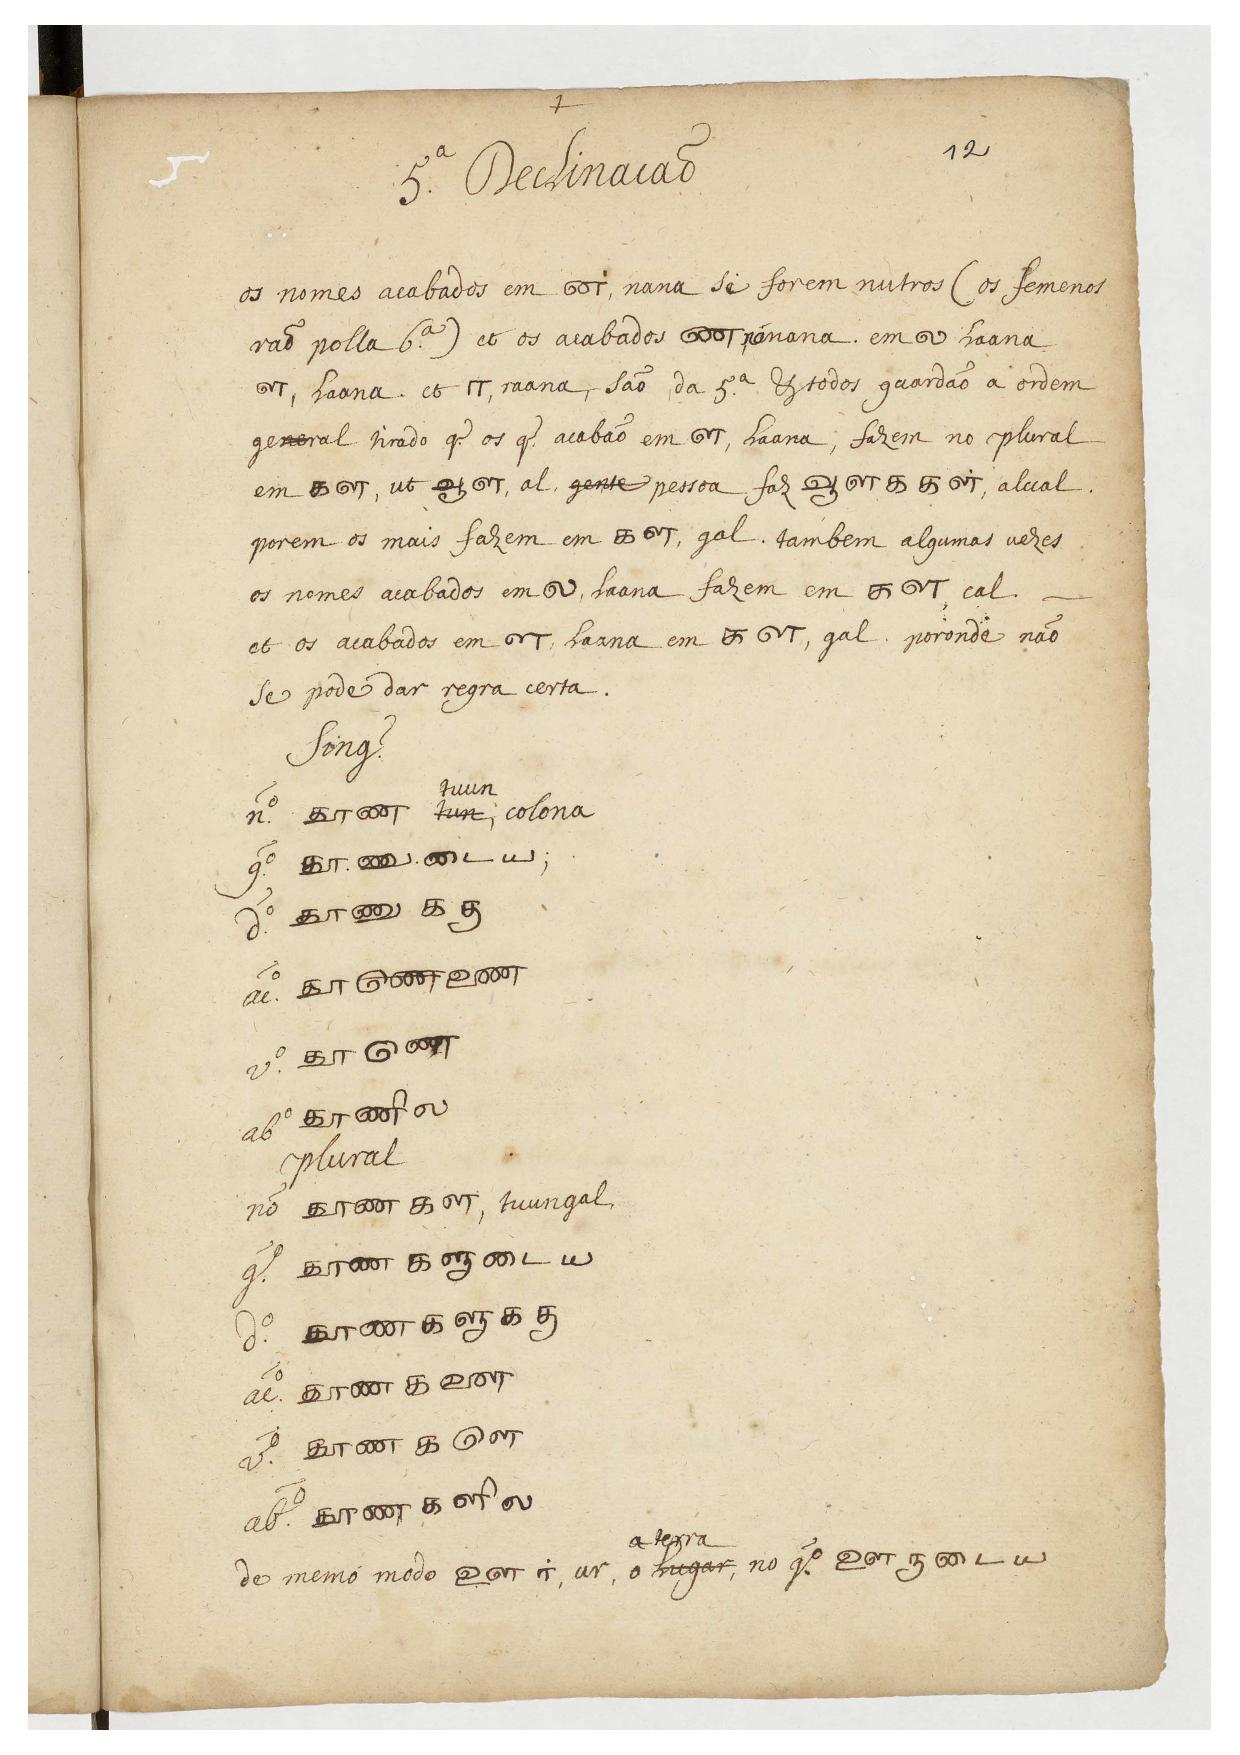 12
5.ª Declinacaõ
os nomes acabados em ன், nana se forem nutros (os femenos
raõ polla 6.ª) et os acabados ண, nana. em ல laana
ள, laana. et ர, raana, saõ da 5.ª & todos guardaõ a ordem
general tirado q̃ os q̃ acabaõ em ள, laana, fazem no plural
em கள, ut ஆள, al, gente pessoa faz ஆளககள், alcal.
porem os mais fazem em கள, gal. tambem algumas vezes
os nomes acabados em ல, laana fazem em கள, cal.
et os acabados em ள, laana em கள, gal. poronde não
se pode dar regra certa.
sing.
n.º தூண tun, tuun colona
g.º தூ.ணு.டைய;
d.º தூணுகத
ac.º தூணெண
v.º தூணெ
ab.º தூணில
plural
nõ தூணகள, tuungal
g.º தூணகளுடைய
d.º தூணகளுகத
ac.º தூணகளை
v.º தூணகளெ
ab.º தூணகளில
de memo modo ஊர், ur, o lugar, a terra no g.º ஊருடைய